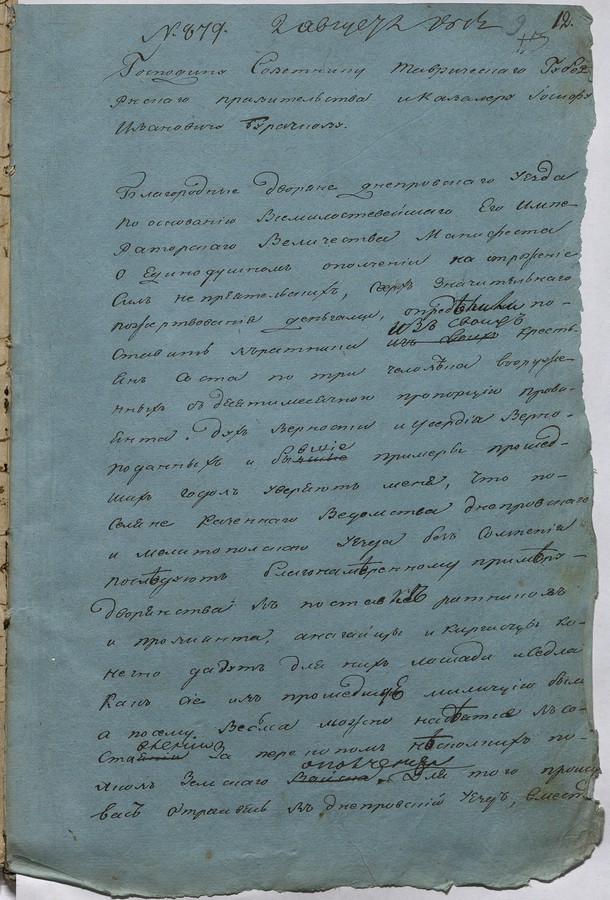 №. 879. 2 августа 1812 12.
Господину Советнику Таврическаго Губер-
нскаго правительства и кавалеру Iосифу
Ивановичу Бурачкову.
Благородные дворяне днепровскаго уезда
по основанию Всемилостевейшаго Его Импе-
раторскаго Величества Манифеста
о единодушномъ ополчении на отражение
силъ неприятельскихъ, сверхъ значительнаго
пожертвования деньгами, определили по-
ставить ратника изъ своихъ кресть-
янъ со ста по три человѣка вооруже-
нныхъ съ десятимесячною пропорциею прови-
янта. Духъ верности и усердия верно-
поданныхъ и бывшие примеры прошед-
шихъ годовъ уверяютъ меня, что по-
селяне казеннаго ведомства днепровскаго
и мелитопольскаго уезда безъ сомнения
послѣдуютъ благонамѣренному примѣру
дворянства въ поставкѣ ратниковъ
и провианта, а нагайцы и киргисцы ко-
нечно дадутъ для нихъ лошади и седла
какъ сие въ прошедшую милицию было
а посему весьма можно надѣятся къ со-
ставлению за перекопомъ нѣсколькихъ по-
лковъ земскаго ополчения. Для того прошу
васъ отправясь въ днепровский уездъ, вмест-